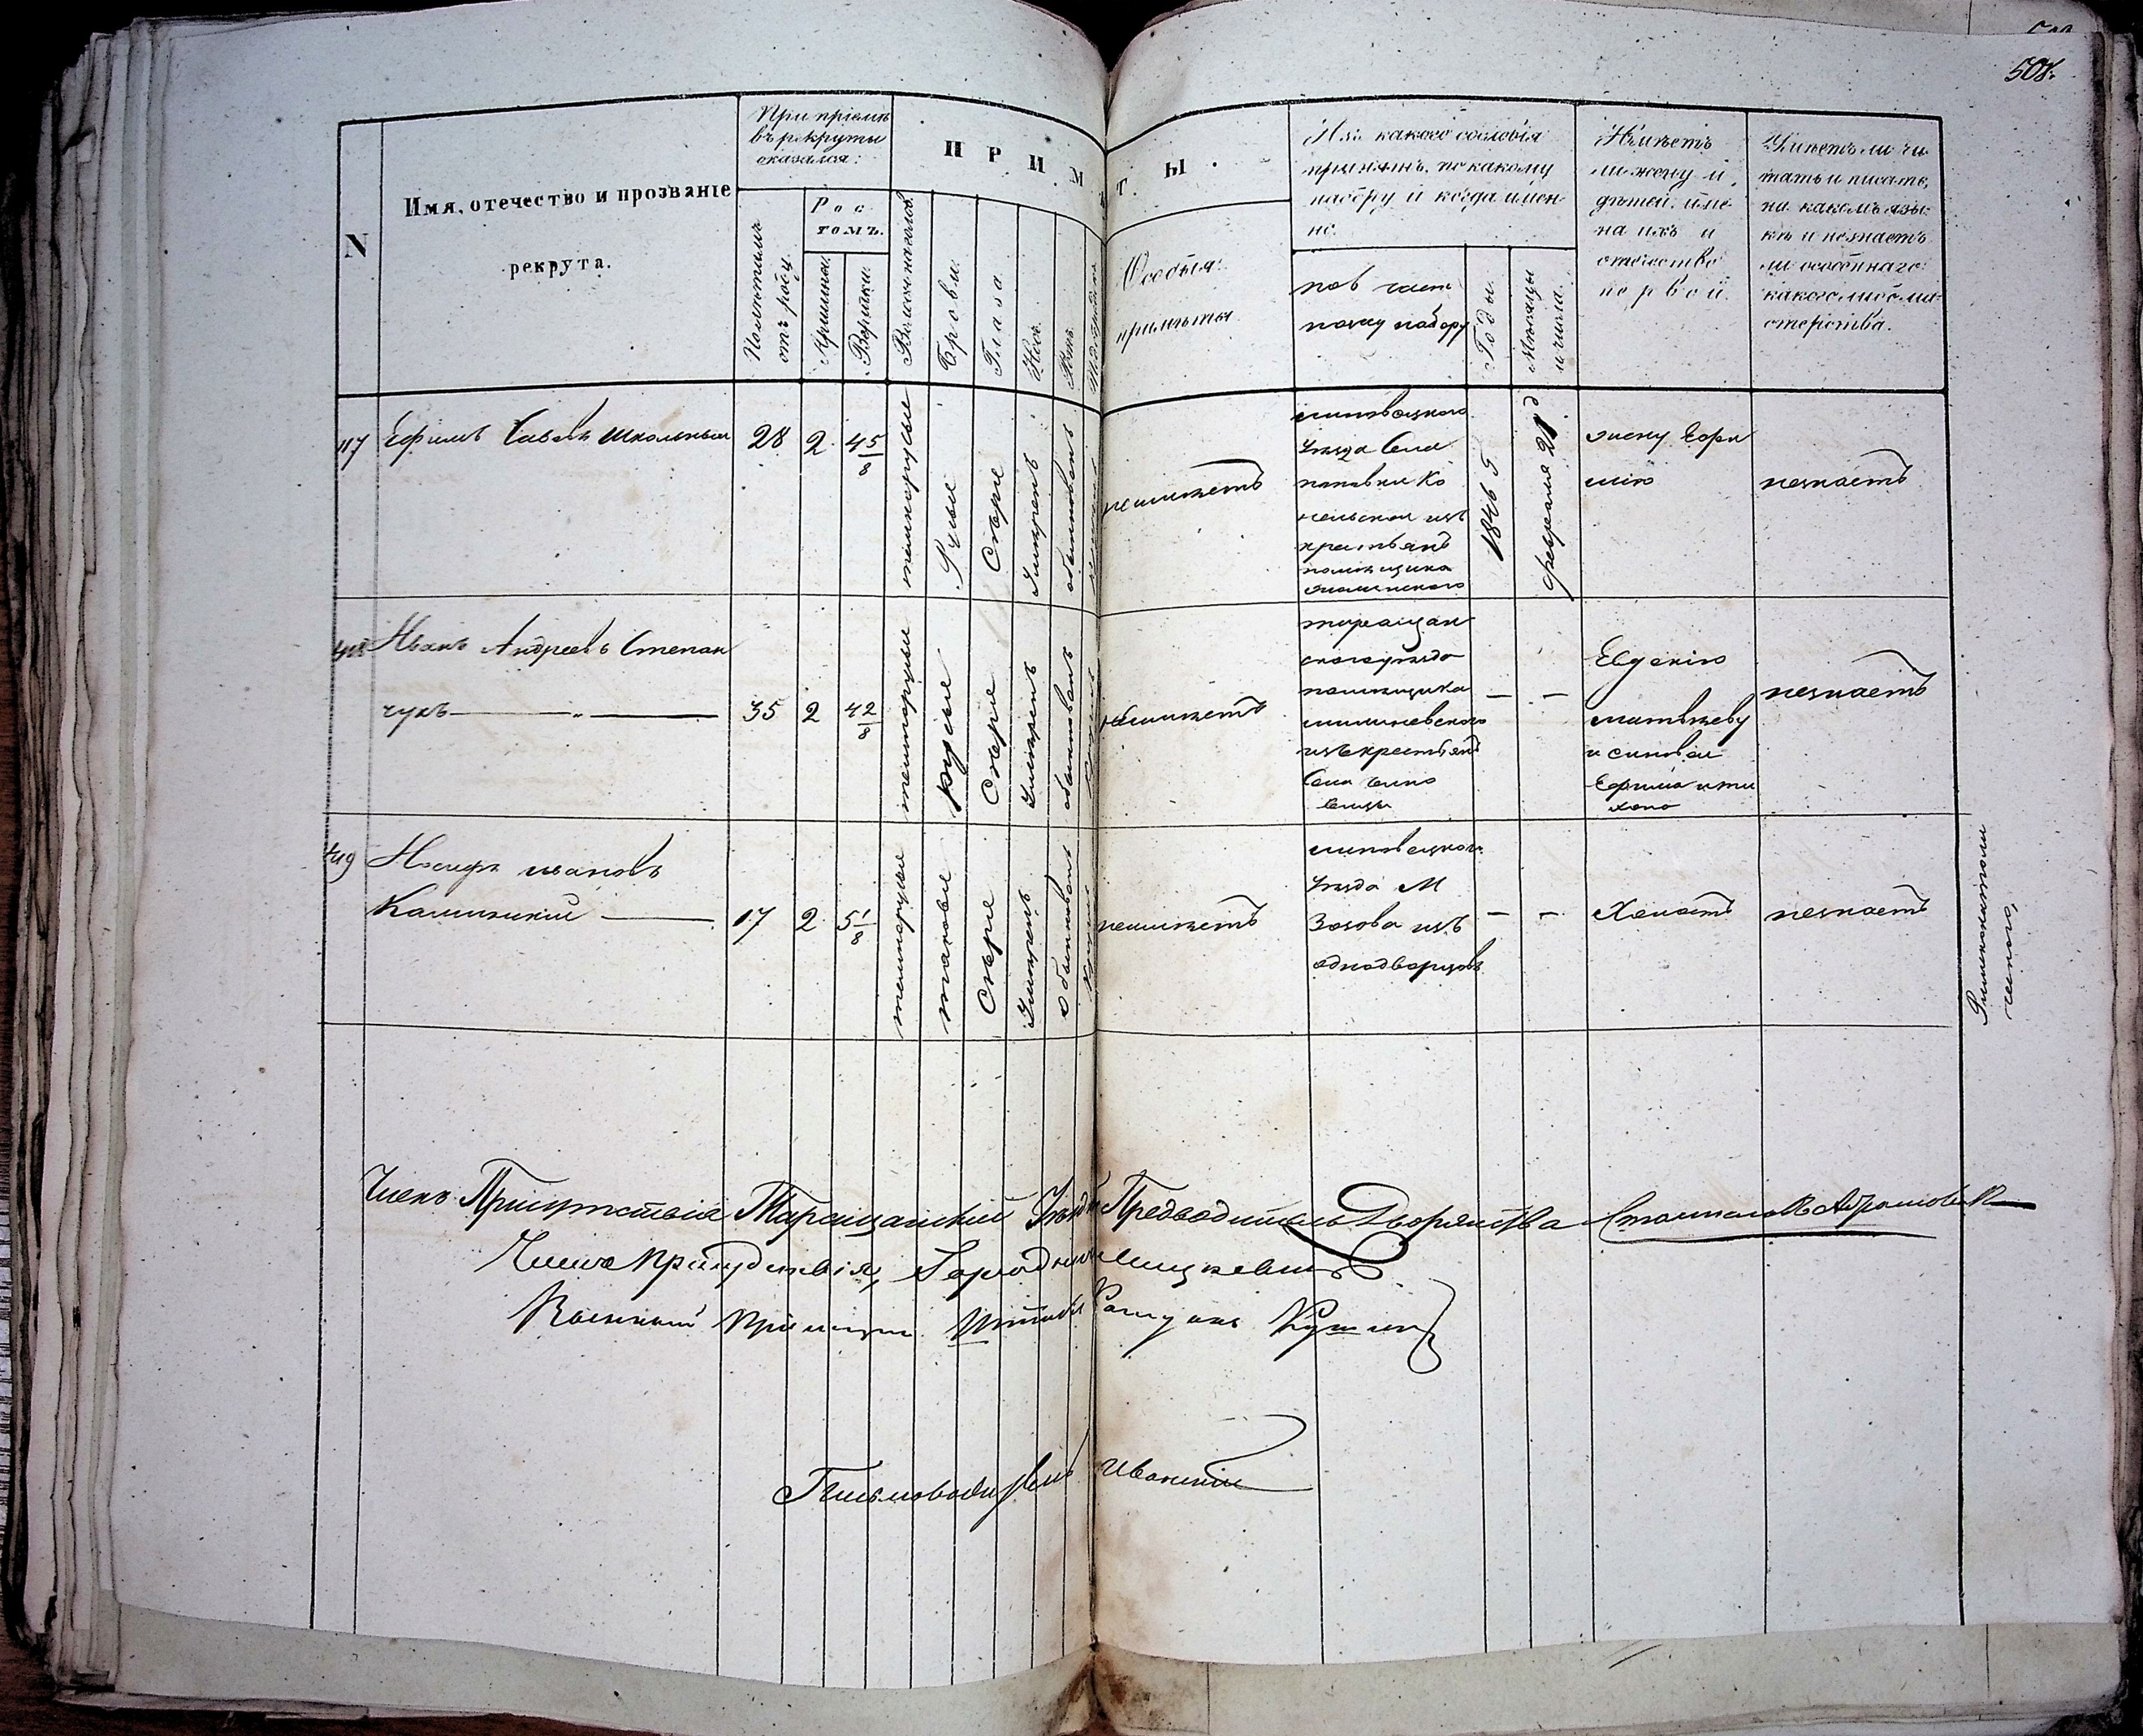 508.
N
Имя, отечество и прозваніе
рекрута.
При пріемѣ
въ рекруты
оказался:
Полѣтамъ
отъ роду.
Рос
томъ.
Аршины.
Вершки.
ПРИМѢТЫ.
Волосы на головѣ.
Брови.
Глаза.
Носъ.
Ротъ.
Подбородокъ
Особыя
примѣты
Изъ какого сословія
принятъ, по какому
набору и когда имен-
но.
по 6 част
ному набору
Годы.
Мѣсяцы
и числа.
Имѣетъ
ли жену и
дѣтей, име-
на ихъ и
отечество
первой.
Умѣетъ ли чи-
тать и писать,
на какомъ язы-
кѣ и не знаетъ
ли особеннаго
какого либо ма-
стерства.
417
Ефимъ Савовъ Школьный
28
2
4 5/8
темнорусые
Русые
Сѣрые
Умѣренъ
обыкновенъ
неимѣетъ
липовецкого
уѣзда Села
поповки Ко
нельской изъ
крестьянъ
помѣщика
1846
февраля 21
жену Ефи
мію
незнаетъ
418
Иванъ Андреевъ Степан
чукъ — „ —
35
2
4 2/8
темнорусые
русые
Сѣрые
Умѣренъ
обыкновенъ
неимѣетъ
таращан
скаго уѣзда
помѣщика
изъ крестьянъ
Села
—
—
Евдокію
матвѣеву
и сыновей
Ефима и ти
хона
незнаетъ
419
Іосифъ ивановъ
Калинскій —
17
2
5 1/8
темнорусые
таковые
Сѣрые
Умѣренъ
обыкновенъ
неимѣетъ
липовецкого
уѣзда М
Зозова изъ
однодворцовъ
—
—
Холостъ
незнаетъ
Римскокатоли
ческого,
Членъ Присутствія Таращанскій Уѣздн Предводитель Дворянства
Членъ присудствія, Городничій
Военный пріемщикъ Штабсъ Капитанъ
Письмоводитель Иванскій